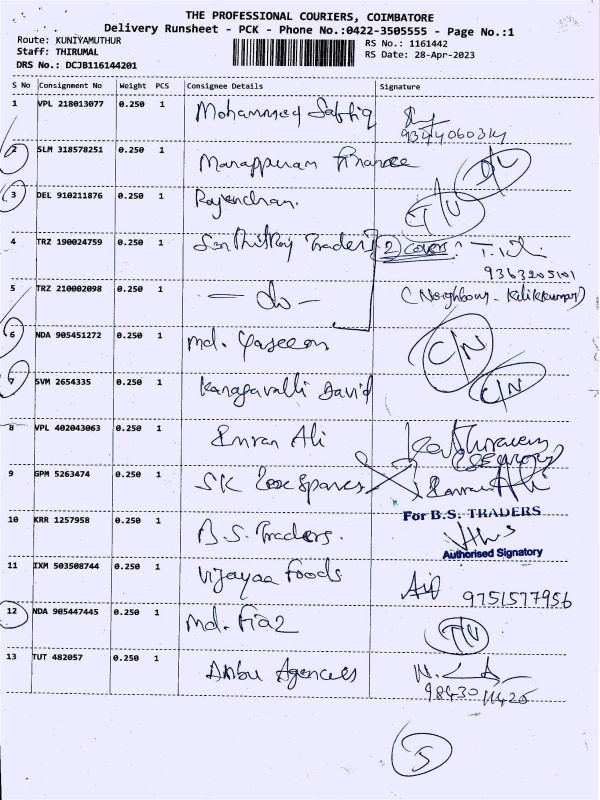 THE PROFESSIONAL COURIERS, COIMBATORE
Delivery Runsheet - PCK - Phone No.:0422-3505555 - Page No.:1
Route: KUNIYAMUTHUR
RS No.: 1161442
Staff: THIRUMAL
RS Date: 28-Apr-2023
DRS No.: DCJB116144201
S No Consignment No Weight PCS Consignee Details Signature
1 VPL 218013077 0.250 1 Mohammed
2 SLM 318578251 0.250 1 Manappuram Finance
3 DEL 910211876 0.250 1 Rajendran.
4 TRZ 190024759 0.250 1 Traders 2 covers
9363205101
5 TRZ 210002098 0.250 1 - do - (Neighbour -
6 NDA 905451272 0.250 1 Md. Yaseen C/N
7 SVM 2654335 0.250 1 Kanagavalli David C/N
8 VPL 402043063 0.250 1 Imran Ali
9 GPM 5263474 0.250 1 SK Spares
For B.S. TRADERS
10 KRR 1257958 0.250 1 B.S. Traders.
Authorised Signatory
11 IXM 503508744 0.250 1 Vijayaa Foods
9751577956
12 NDA 905447445 0.250 1 Md. Fiaz
13 TUT 482057 0.250 1 Anbu Agencies
5